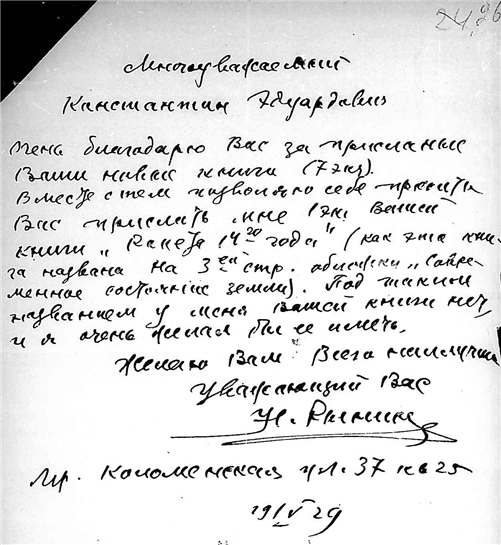 24, 26
Многоуважаемый
Константин Эдуардович
Очень благодарю Вас за присланные
Ваши новые книги (7 экз).
Вместе с тем позволяю себе просить
Вас прислать мне 1 экз Вашей
книги „Ракета 1420 года" (как эта кни-
га названа на 3ей стр. обложки „Совре-
менное состояние земли). Под таким
названием у меня Вашей книги нет
и я очень желал бы ее иметь.
Желаю Вам Всего наилучш
Уважающий Вас
Н. Рынин
Коломенская ул. 37 кв 25
19 IV 29